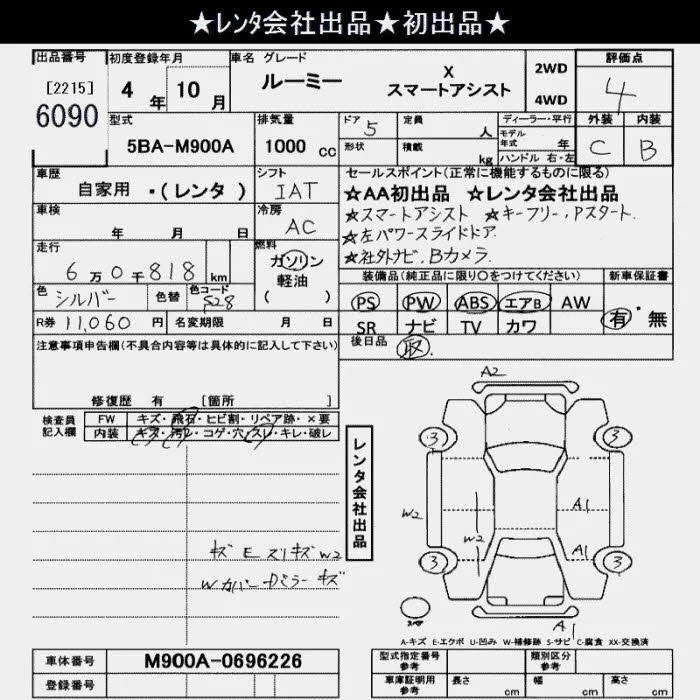 ★レンタ会社出品★初出品★
出品番号 初度登録年月 車名 グレード 評価点
[2215] 4年 10月 ルーミー X スマートアシスト 2WD 4WD 4
6090
型式 排気量 ドア 5 定員 人 ディーラー・平行 外装 内装
5BA-M900A 1000 cc 形状 積載 kg モデル年式 年 C B
ハンドル 右・左
車歴 シフト セールスポイント(正常に機能するものに限る)
自家用 ・(レンタ) IAT ★AA初出品 ★レンタ会社出品
車検 冷房 ★スマートアシスト ★キーフリー,Pスタート.
年 月 日 AC ★左パワースライドドア.
走行 燃料 ★社外ナビ,Bカメラ.
6万0千818 km ガソリン 軽油 ( )
装備品(純正品に限り○をつけてください) 新車保証書
色 シルバー 色替 色コード S28 PS PW ABS エアB AW 有・無
R券 11,060 円 名変期限 月 日 SR ナビ TV カワ
注意事項申告欄(不具合内容等は具体的に記入して下さい) 後日品 取.
修復歴 有 [箇所 ]
検査員記入欄 FW キズ・飛石・ヒビ割・リペア跡・×要
内装 キズ・汚レ・コゲ・穴・スレ・キレ・破レ
レンタ会社出品
A2
3 3
W2 A1
W2 A1
3 3
キズ E スリキズ W2
W カバー ミラー キズ
スペア
A1
A-キズ E-エクボ U-凹み W-補修跡 S-サビ C-腐食 XX-交換済
車体番号 M900A-0696226 型式指定番号 参考 類別区分 参考
登録番号 車庫証明用 参考 長さ cm 幅 cm 高さ cm